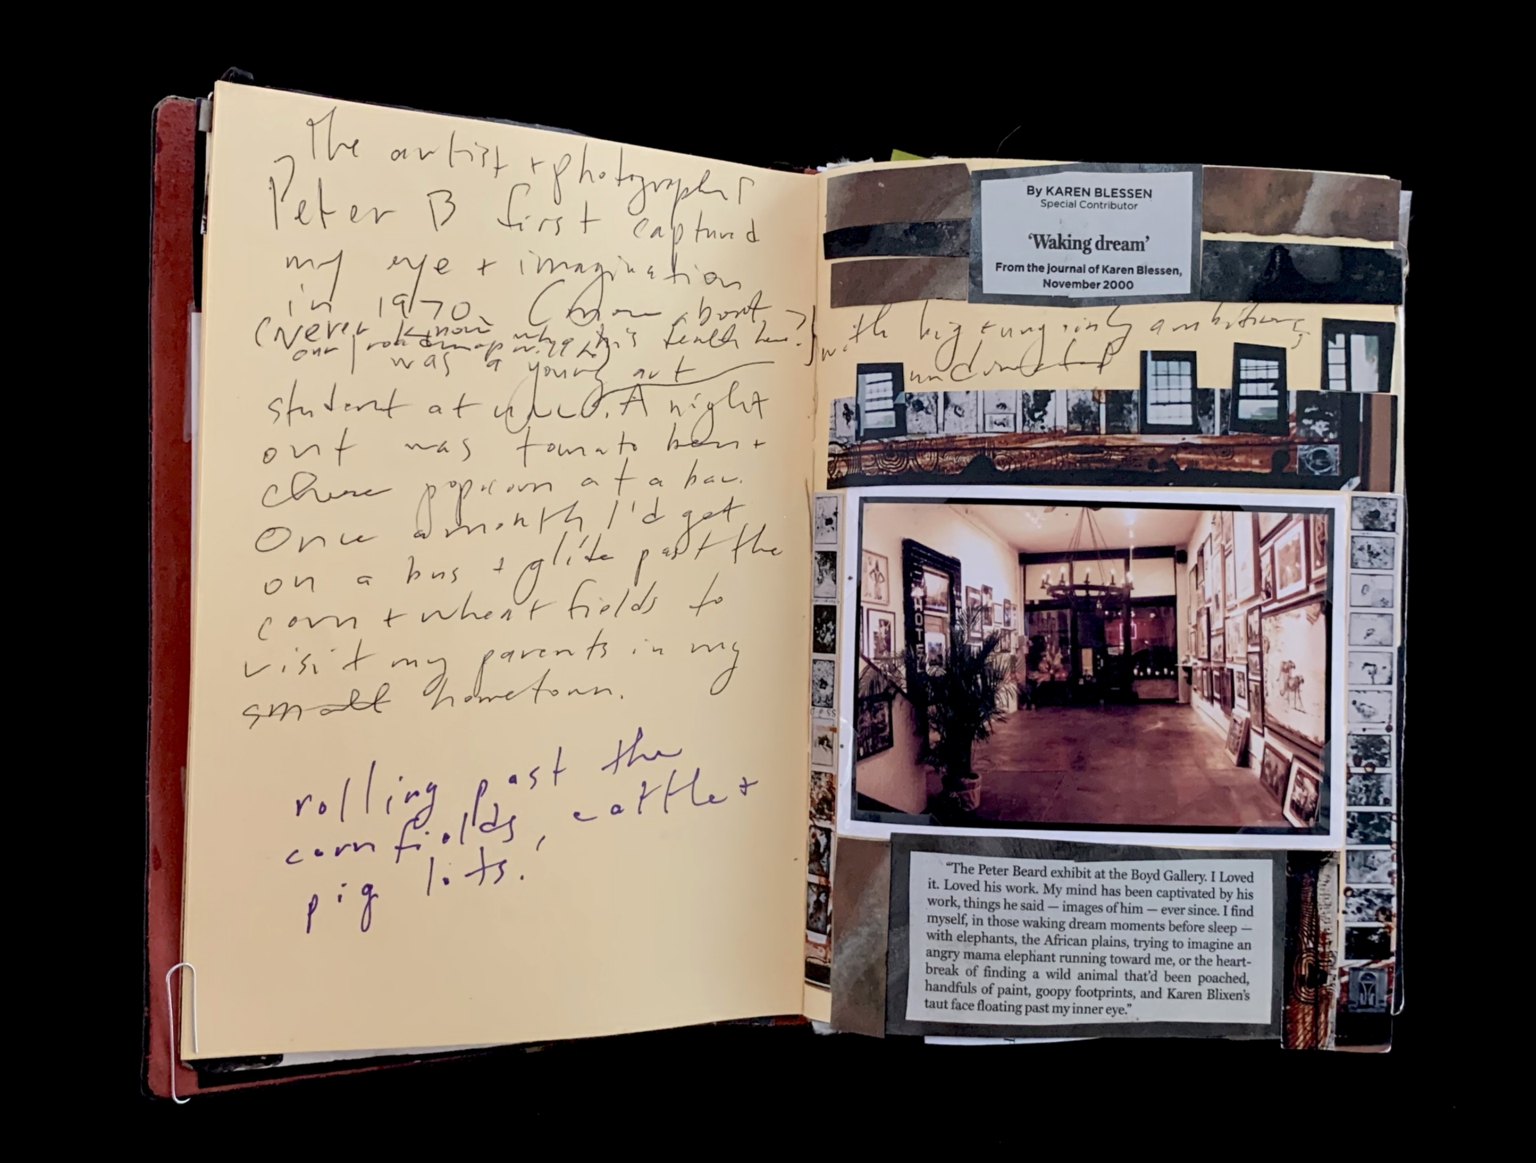 The artist + photographer
Peter B first captured
my eye + imagination
in 1970. (
(Never know
was a young art
student at A night
out was tomato beer +
cheese popcorn at a bar.
Once a month I'd get
on a bus + glide past the
corn + wheat fields to
visit my parents in my
small hometown.
rolling past the
corn fields, cattle +
pig lots.
By KAREN BLESSEN
Special Contributor
‘Waking dream’
From the journal of Karen Blessen,
November 2000
with big + ungainly ambitions,
undirected
HOTEL
“The Peter Beard exhibit at the Boyd Gallery. I Loved
it. Loved his work. My mind has been captivated by his
work, things he said — images of him — ever since. I find
myself, in those waking dream moments before sleep —
with elephants, the African plains, trying to imagine an
angry mama elephant running toward me, or the heart-
break of finding a wild animal that’d been poached,
handfuls of paint, goopy footprints, and Karen Blixen’s
taut face floating past my inner eye.”